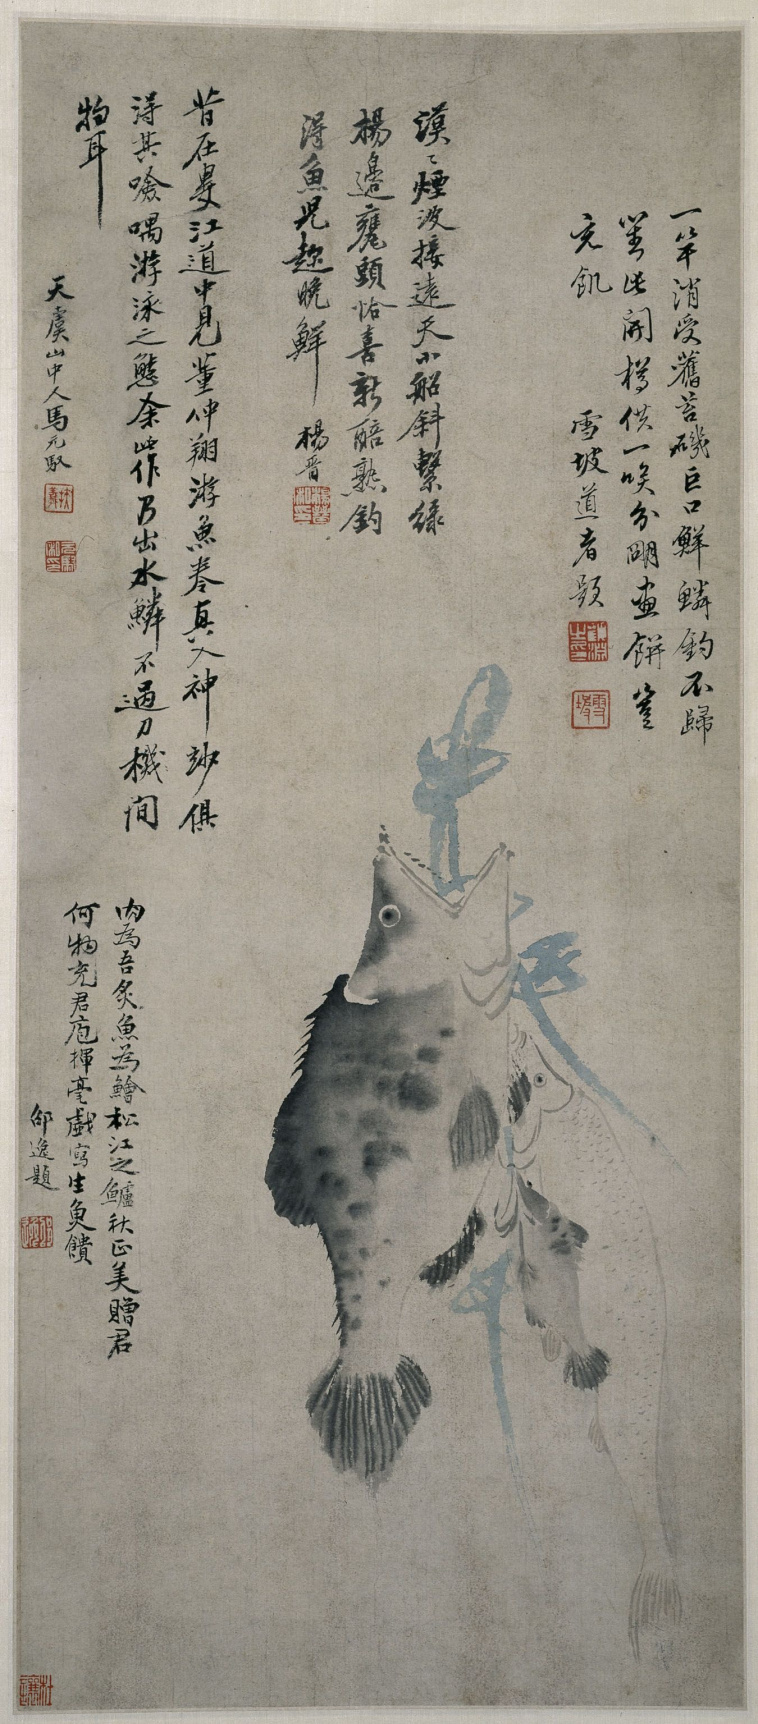 一竿消受舊苔磯巨口鮮鱗釣不歸
對此開樽供一笑分明畫餅豈
充飢
雪坡道者題
漠〻煙波接遠天小船斜繫綠
楊邊甕頭恰喜新醅熟釣
得魚兒趁晚鮮
楊晉
昔在婁江道中見董仲翔游魚卷真入神妙俱
得其噞喁游泳之態余此作乃出水鱗不過刀機間
物耳
天虞山中人馬元馭
肉為吾炙魚為鱠松江之鱸秋正美贈君
何物充君庖揮毫戲寫生魚饋
邵逸題